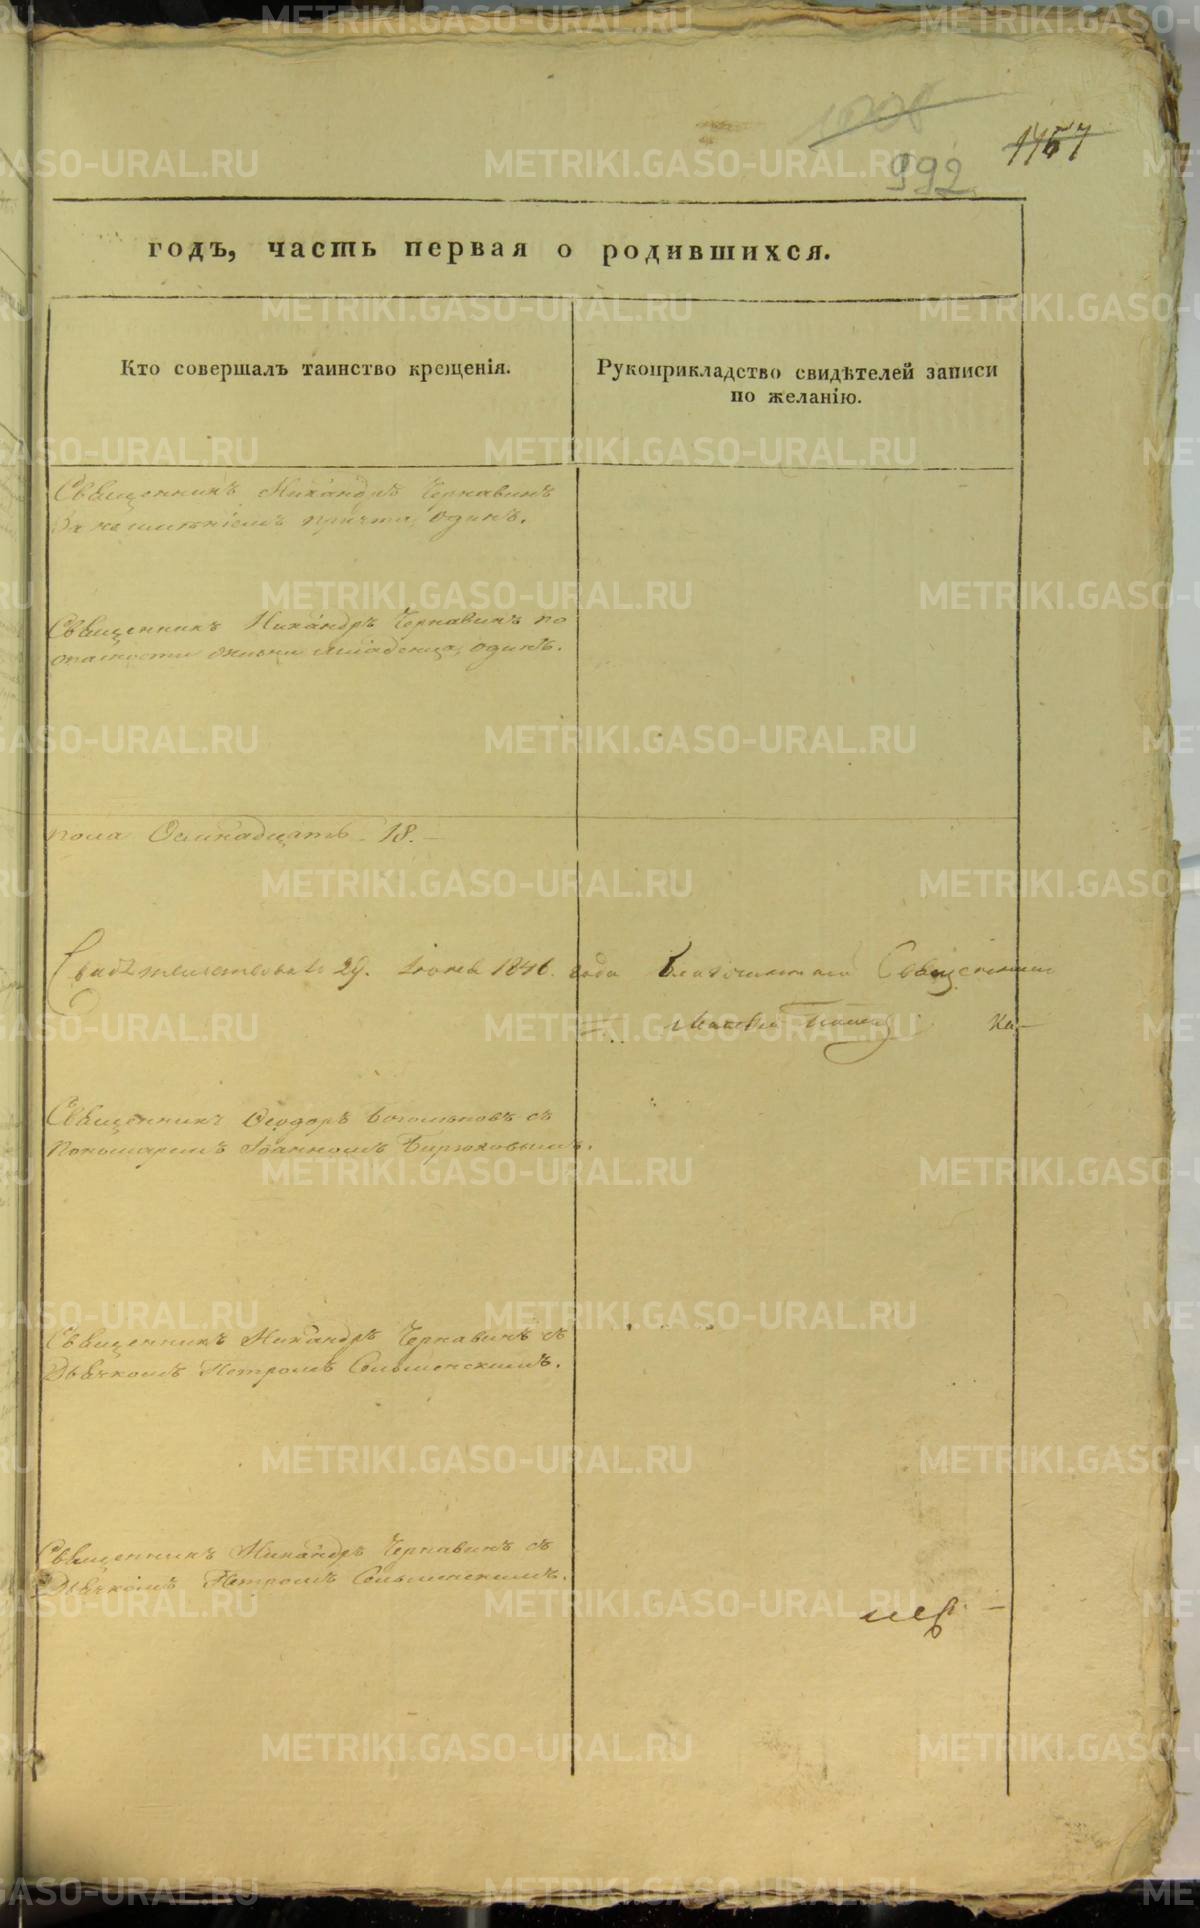 1008
1457
992
годъ, часть первая о родившихся.
Кто совершалъ таинство крещенія.
Рукоприкладство свидѣтелей записи
по желанію.
Священникъ Никандръ Чернавинъ
За неимѣніемъ причта, одинъ.
Священникъ Никандръ Чернавинъ по
опасности жизни младенца, одинъ.
пола Осмнадцать 18.
Свидѣтельствовалъ 29. Іюня 1846. года Благочинный Священникъ
Священникъ Ѳеодоръ с
Пономаремъ Іоанномъ Бирюковымъ.
Священникъ Никандръ Чернавинъ съ
Дьячкомъ Петромъ
Священникъ Никандръ Чернавинъ съ
Дьячкомъ Петромъ
METRIKI.GASO-URAL.RU